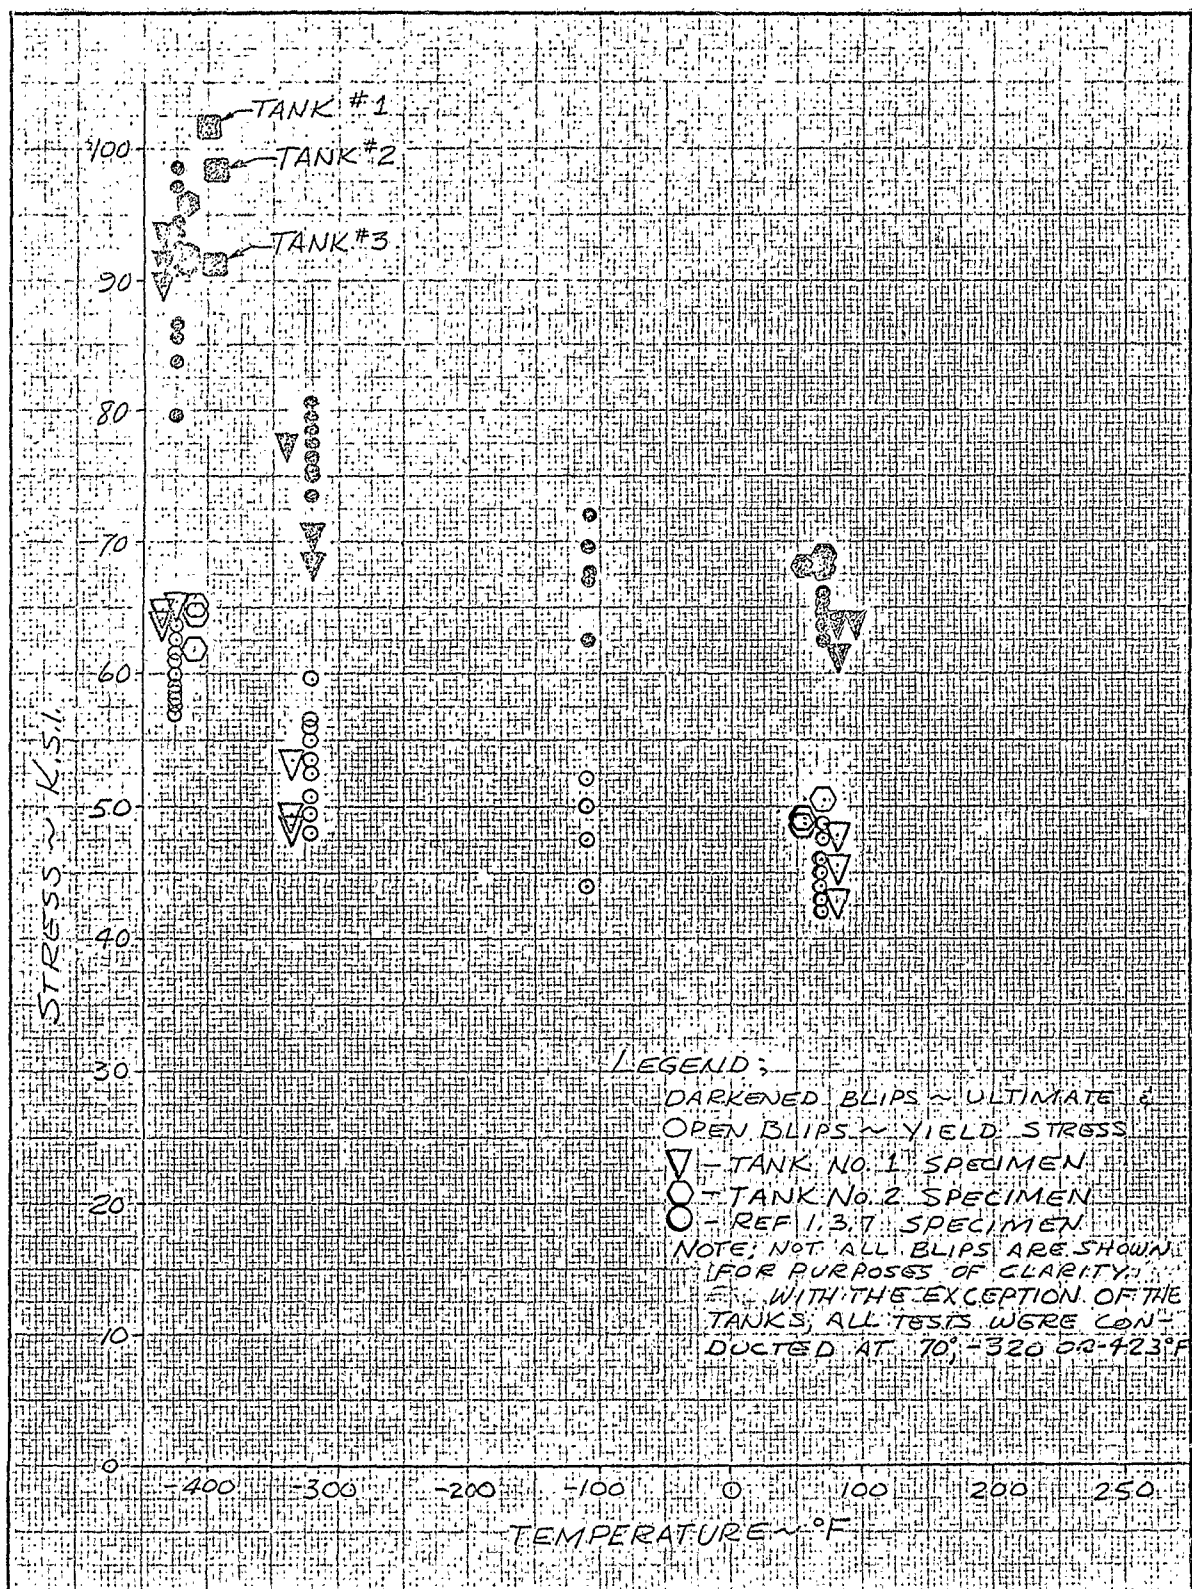 TANK #1
100
TANK #2
TANK #3
90
80
70
60
50
40
30
20
10
0
STRESS ~ K.S.I.
LEGEND;
DARKENED BLIPS ~ ULTIMATE &
OPEN BLIPS ~ YIELD STRESS
- TANK NO. 1 SPECIMEN
- TANK No. 2 SPECIMEN
- REF 1.3.7 SPECIMEN
NOTE; NOT ALL BLIPS ARE SHOWN
FOR PURPOSES OF CLARITY.
WITH THE EXCEPTION OF THE
TANKS, ALL TESTS WERE CON-
DUCTED AT 70°, -320 OR -423°F
-400 -300 -200 -100 0 100 200 250
TEMPERATURE ~ °F